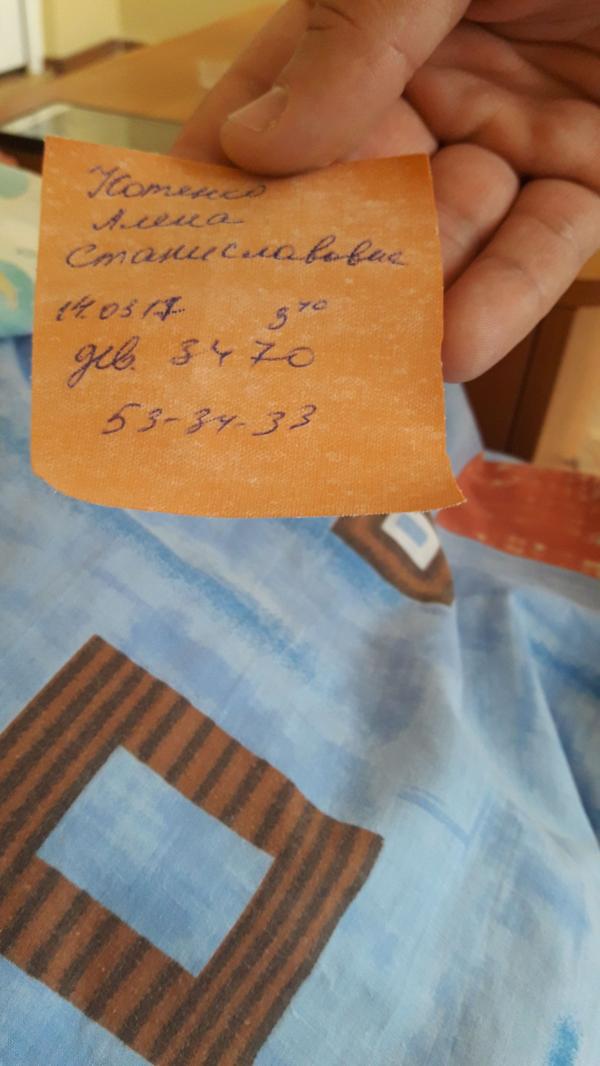 Котенко
Алена
Станиславовна
14.03 17 9⁴⁰
дев. 3470
53-34-33